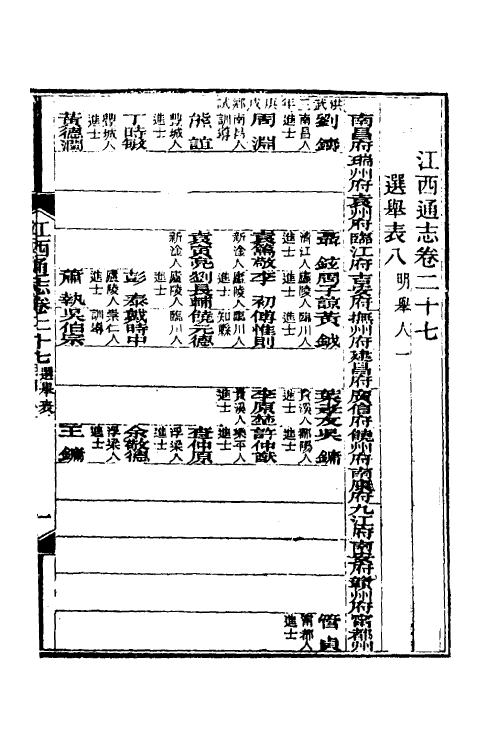 江西通志卷二十七
選舉表八 明舉人一
南昌府 瑞州府 袁州府 臨江府 吉安府 撫州府 建昌府 廣信府 饒州府 南康府 九江府 南安府 贛州府 寧都州
洪武三年庚戌鄉試
劉鏞 聶鉉 周子諒 黃鉞 吳鏞 管貞
南昌人進士 清江人進士 廬陵人進士 臨川人進士 貴溪人進士 鄱陽人進士 寧都人進士
周淵 袁篤敬 李初 傅惟則 李原 許仲
南昌人訓導 新淦人進士 廬陵人知縣 臨川人進士 貴溪人進士 樂平人進士
熊誼 袁寅亮 劉長輔 饒元德 查仲原
豐城人進士 新淦人 廬陵人進士 臨川人進士 浮梁人進士
丁時敏 彭泰 戴時中 余敬德
豐城人進士 廬陵人訓導 崇仁人進士 浮梁人進士
黃德潤 蕭執 吳伯宗 王鏞
江西通志卷二十七 選舉表 一